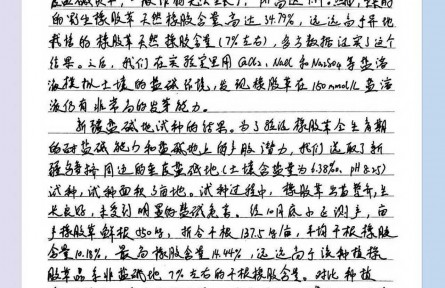 的野生橡胶草天然橡胶含量高达34.79%，远远高于异地
栽培的橡胶草天然橡胶含量(7%左右)，多方数据证实了这个
结果。之后，我们在实验室里用CaCl₂、NaCl和Na₂SO₄等盐溶
液模拟土壤的盐碱环境，发现橡胶草在150mmol/L盐溶
液仍有非常高的发芽能力。
新疆盐碱地试种的结果。为了验证橡胶草全生育期
的耐盐碱能力和盐碱地上的产胶潜力，我们选取了新
疆乌鲁木齐周边的重度盐碱地(土壤含盐量为6.38‰，pH 8.25)
试种，试种面积3亩地。试种过程中，橡胶草出苗整齐，生
长良好，未受到明显的盐碱危害。经10月底小区测产，亩
产橡胶草鲜根550斤，折合干根137.5斤/亩，平均干根橡胶
含量10.18%，最高橡胶含量14.44%，远远高于该种植橡
胶草品系非盐碱地7%左右的干根橡胶含量。对比种植